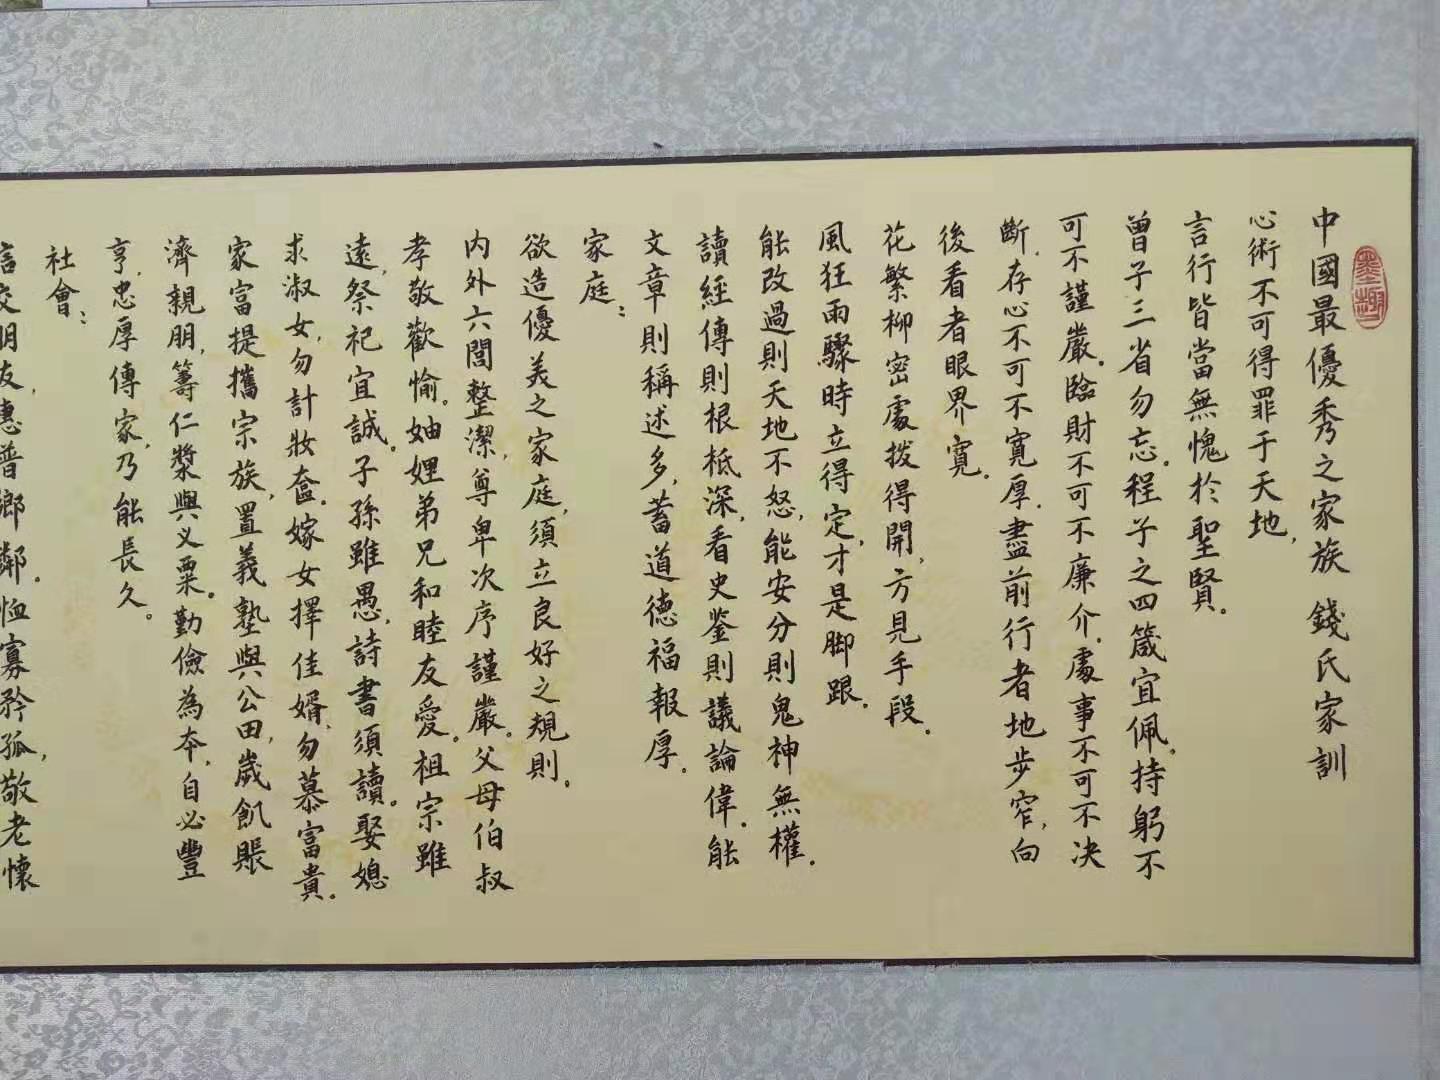 墨趣
中國最優秀之家族 錢氏家訓
心術不可得罪于天地，
言行皆當無愧於聖賢。
曾子三省勿忘。程子之四箴宜佩。持躬不
可不謹嚴。臨財不可不廉介。處事不可不决
斷。存心不可不寬厚。盡前行者地步窄，向
後看者眼界寬。
花繁柳密處撥得開，方見手段。
風狂雨驟時立得定，才是脚跟。
能改過則天地不怒，能安分則鬼神無權。
讀經傳則根柢深，看史鉴則議論偉。能
文章則稱述多，蓄道德福報厚。
家庭：
欲造優美之家庭，須立良好之規則。
内外六閭整潔，尊卑次序謹嚴。父母伯叔
孝敬歡愉。妯娌弟兄和睦友愛。祖宗雖
遠，祭祀宜誠。子孫雖愚，詩書須讀。娶媳
求淑女，勿計妝奩。嫁女擇佳婿，勿慕富貴。
家富提攜宗族，置義塾與公田，歲飢賬
濟親朋，籌仁漿與义粟。勤儉為本，自必豐
亨，忠厚傳家，乃能長久。
社會：
言交朋友，惠普鄉鄰。恤寡矜孤，敬老懷